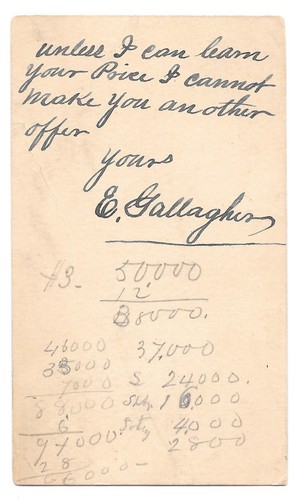 unless I can learn
your Price I cannot
make you another
offer
yours
E. Gallagher
#3- 50000
12
38000.
46000 37,000
35000
7000 S 24000.
88000 16000
6 4000
94000 2800
28
66000-